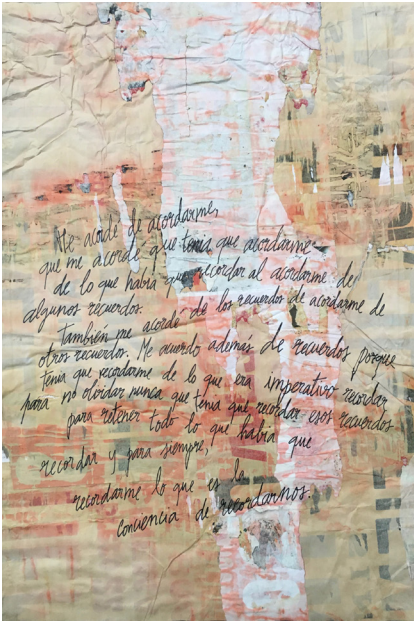 Me acordé de acordarme,
que me acordé que tenía que acordarme
de lo que había que recordar al acordarme de
algunos recuerdos.
También me acordé de los recuerdos de acordarme de
otros recuerdos. Me acuerdo además de recuerdos porque
tenía que recordarme de lo que era imperativo recordar
para no olvidar nunca que tenía que recordar esos recuerdos
para retener todo lo que había que
recordar y para siempre,
recordarme lo que es la
conciencia de recordarnos.